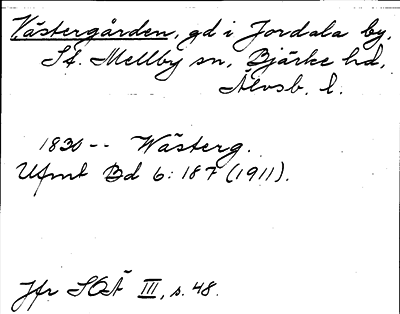 Västergården, gd i Jordala by,
St. Mellby sn, Bjärke hd,
Älvsb. l.
1830-- Wästerg.
Ufmt Bd 6: 187 (1911).
Jfr SOÄ III, s. 48.